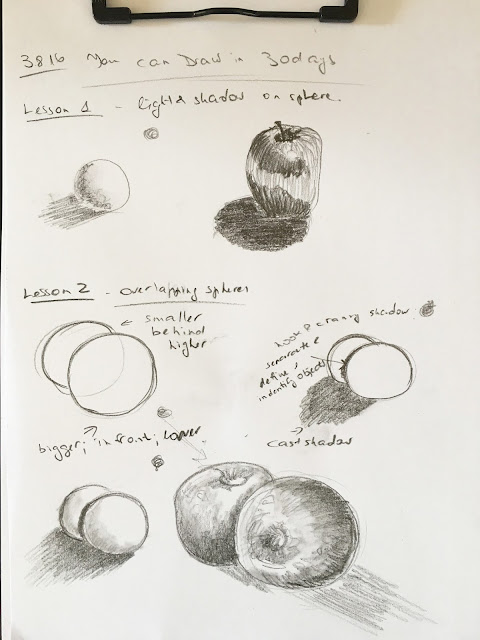 3816 You can Draw in 30days
Lesson 1 - light & shadow on sphere.
Lesson 2 - overlapping spheres
← smaller
behind
higher
nook & cranny shadow
separate &
define &
indentify objects
bigger; in front; lower
cast shadow